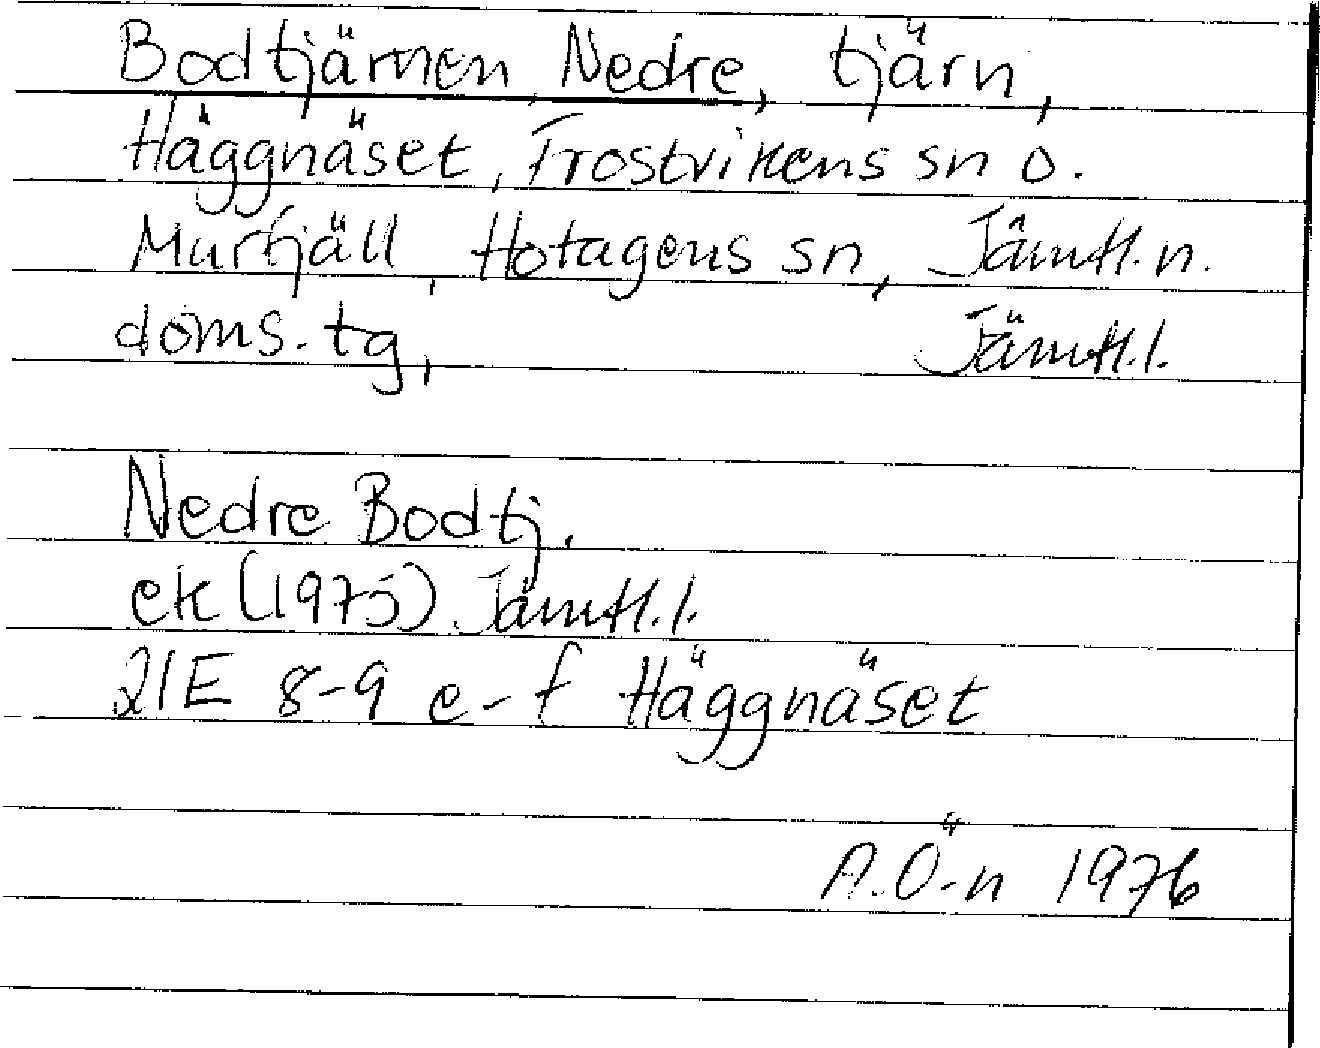 Bodtjärnen, Nedre, tjärn,
Häggnäset, Frostvikens sn o.
Murfjäll, Hotagens sn, Jämtl. n.
doms. tg, Jämtl. l.
Nedre Bodtj.
ek (1975) Jämtl. l.
21E 8-9 e-f Häggnäset
A.Ö-n 1976